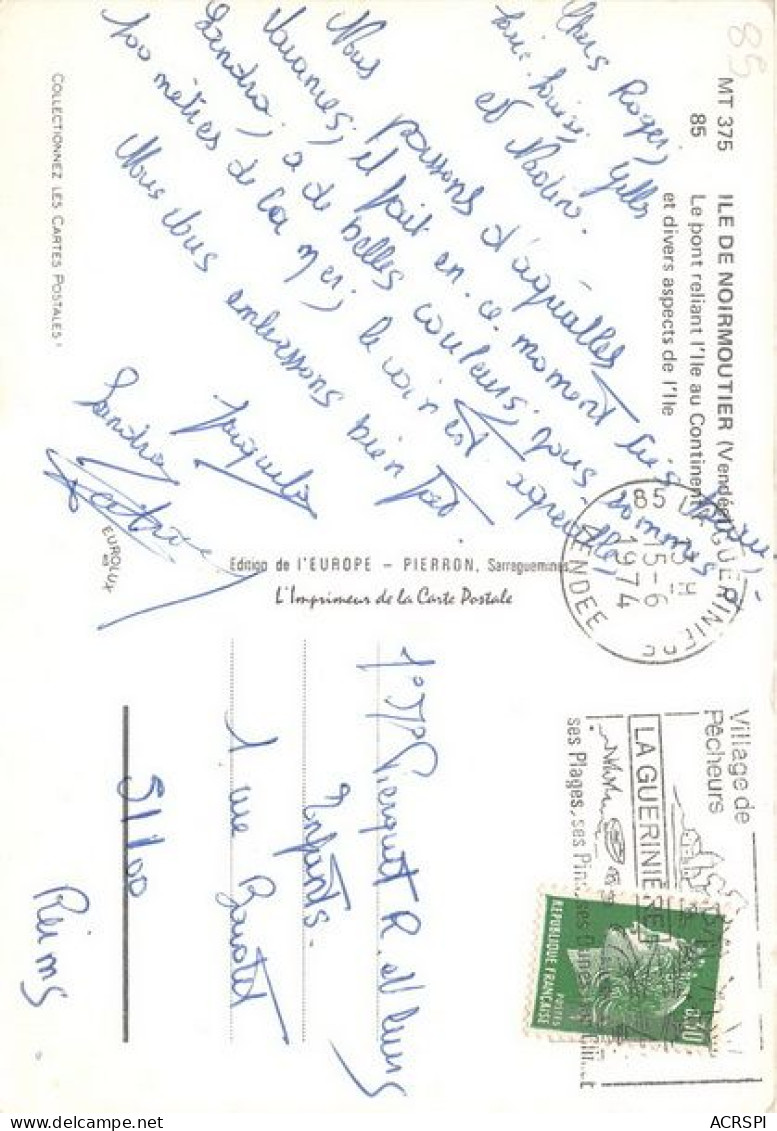 MT 375 ILE DE NOIRMOUTIER (Vendée)
85 Le pont reliant l'Ile au Continent
et divers aspects de l'Ile
85
Chers Roger,
Gilles
et Nadine.
Nous passons d'agréables
vacances, il fait en ce moment très
Sandra, a de belles couleurs, nous sommes
100 mètres de la mer, le coin est agréable
Nous vous embrassons bien fort.
Sandra
COLLECTIONNEZ LES CARTES POSTALES
EUROLUX
Edition de l'EUROPE – PIERRON, Sarreguemines
L'Imprimeur de la Carte Postale
85 LA GUERINIERE
15-6
1974
VENDEE
Village de
Pêcheurs
LA GUERINIERE
ses Plages, ses
REPUBLIQUE FRANÇAISE
POSTES
0,30
R. et leurs
Enfants.
1 rue
51100
Reims
ACRSPI